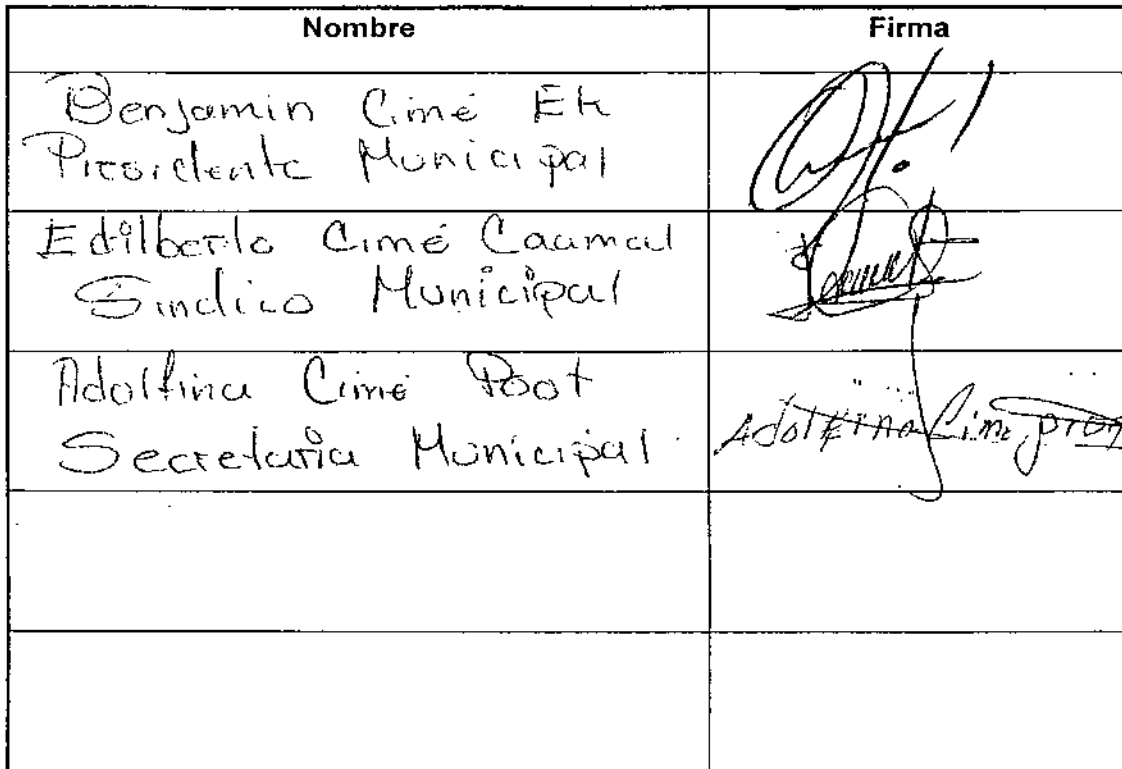 Nombre Firma
Benjamin Cimé Ek
Presidente Municipal
Edilberto Cimé Caamal
Sindico Municipal
Adolfina Cimé Poot
Secretaria Municipal
Adolfina Cime poot